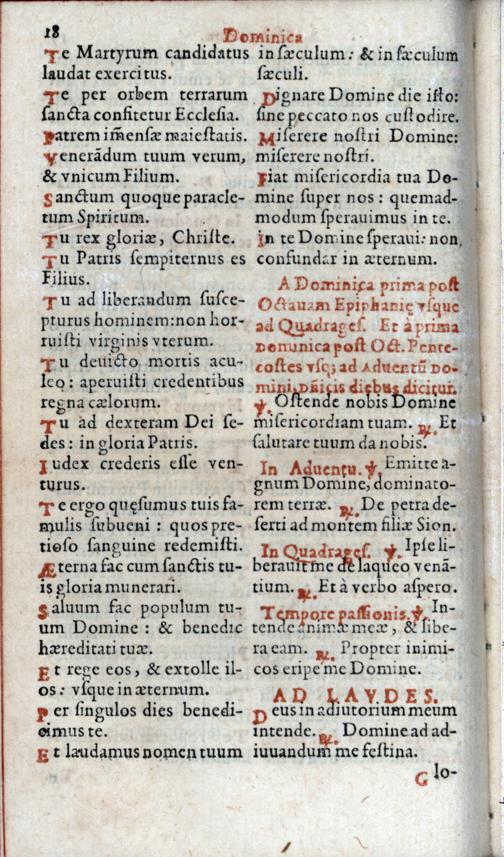 18
Dominica
Te Martyrum candidatus
laudat exercitus.
Te per orbem terrarum
sancta confitetur Ecclesia.
Patrem im̃ensæ maiestatis.
Venerãdum tuum verum,
& vnicum Filium.
Sanctum quoque paracle-
tum Spiritum.
Tu rex gloriæ, Christe.
Tu Patris sempiternus es
Filius.
Tu ad liberandum susce-
pturus hominem: non hor-
ruisti virginis vterum.
Tu deuicto mortis acu-
leo: aperuisti credentibus
regna cælorum.
Tu ad dexteram Dei se-
des: in gloria Patris.
Iudex crederis esse ven-
turus.
Te ergo quęsumus tuis fa-
mulis subueni: quos pre-
tioso sanguine redemisti.
Æterna fac cum sanctis tu-
is gloria munerari.
Saluum fac populum tu-
um Domine: & benedic
hæreditati tuæ.
Et rege eos, & extolle il-
los: vsque in æternum.
Per singulos dies benedi-
cimus te.
Et laudamus nomen tuum
in sæculum: & in sæculum
sæculi.
Dignare Domine die isto:
sine peccato nos custodire.
Miserere nostri Domine:
miserere nostri.
Fiat misericordia tua Do-
mine super nos: quemad-
modum sperauimus in te.
In te Domine speraui: non
confundar in æternum.
A Dominica prima post
Octauam Epiphanię vsque
ad Quadrages. Et à prima
Dominica post Oct. Pente-
costes vsq; ad Aduentũ Do-
mini, Dñicis diebus dicitur.
℣. Ostende nobis Domine
misericordiam tuam. ℟. Et
salutare tuum da nobis.
In Aduentu. ℣. Emitte a-
gnum Domine, dominato-
rem terræ. ℟. De petra de-
serti ad montem filiæ Sion.
In Quadrages. ℣. Ipse li-
berauit me de laqueo venã-
tium. ℟. Et à verbo aspero.
Tempore passionis. ℣. In-
tende animæ meæ, & libe-
ra eam. ℟. Propter inimi-
cos eripe me Domine.
AD LAVDES.
Deus in adiutorium meum
intende. ℟. Domine ad ad-
iuuandum me festina.
Glo-